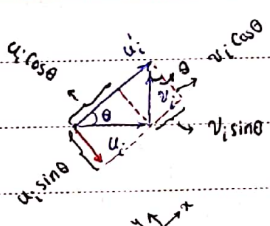 u_i cosθ
u_i'
v_i cosθ
θ
v_i
θ
u_i
v_i sinθ
u_i sinθ
y x